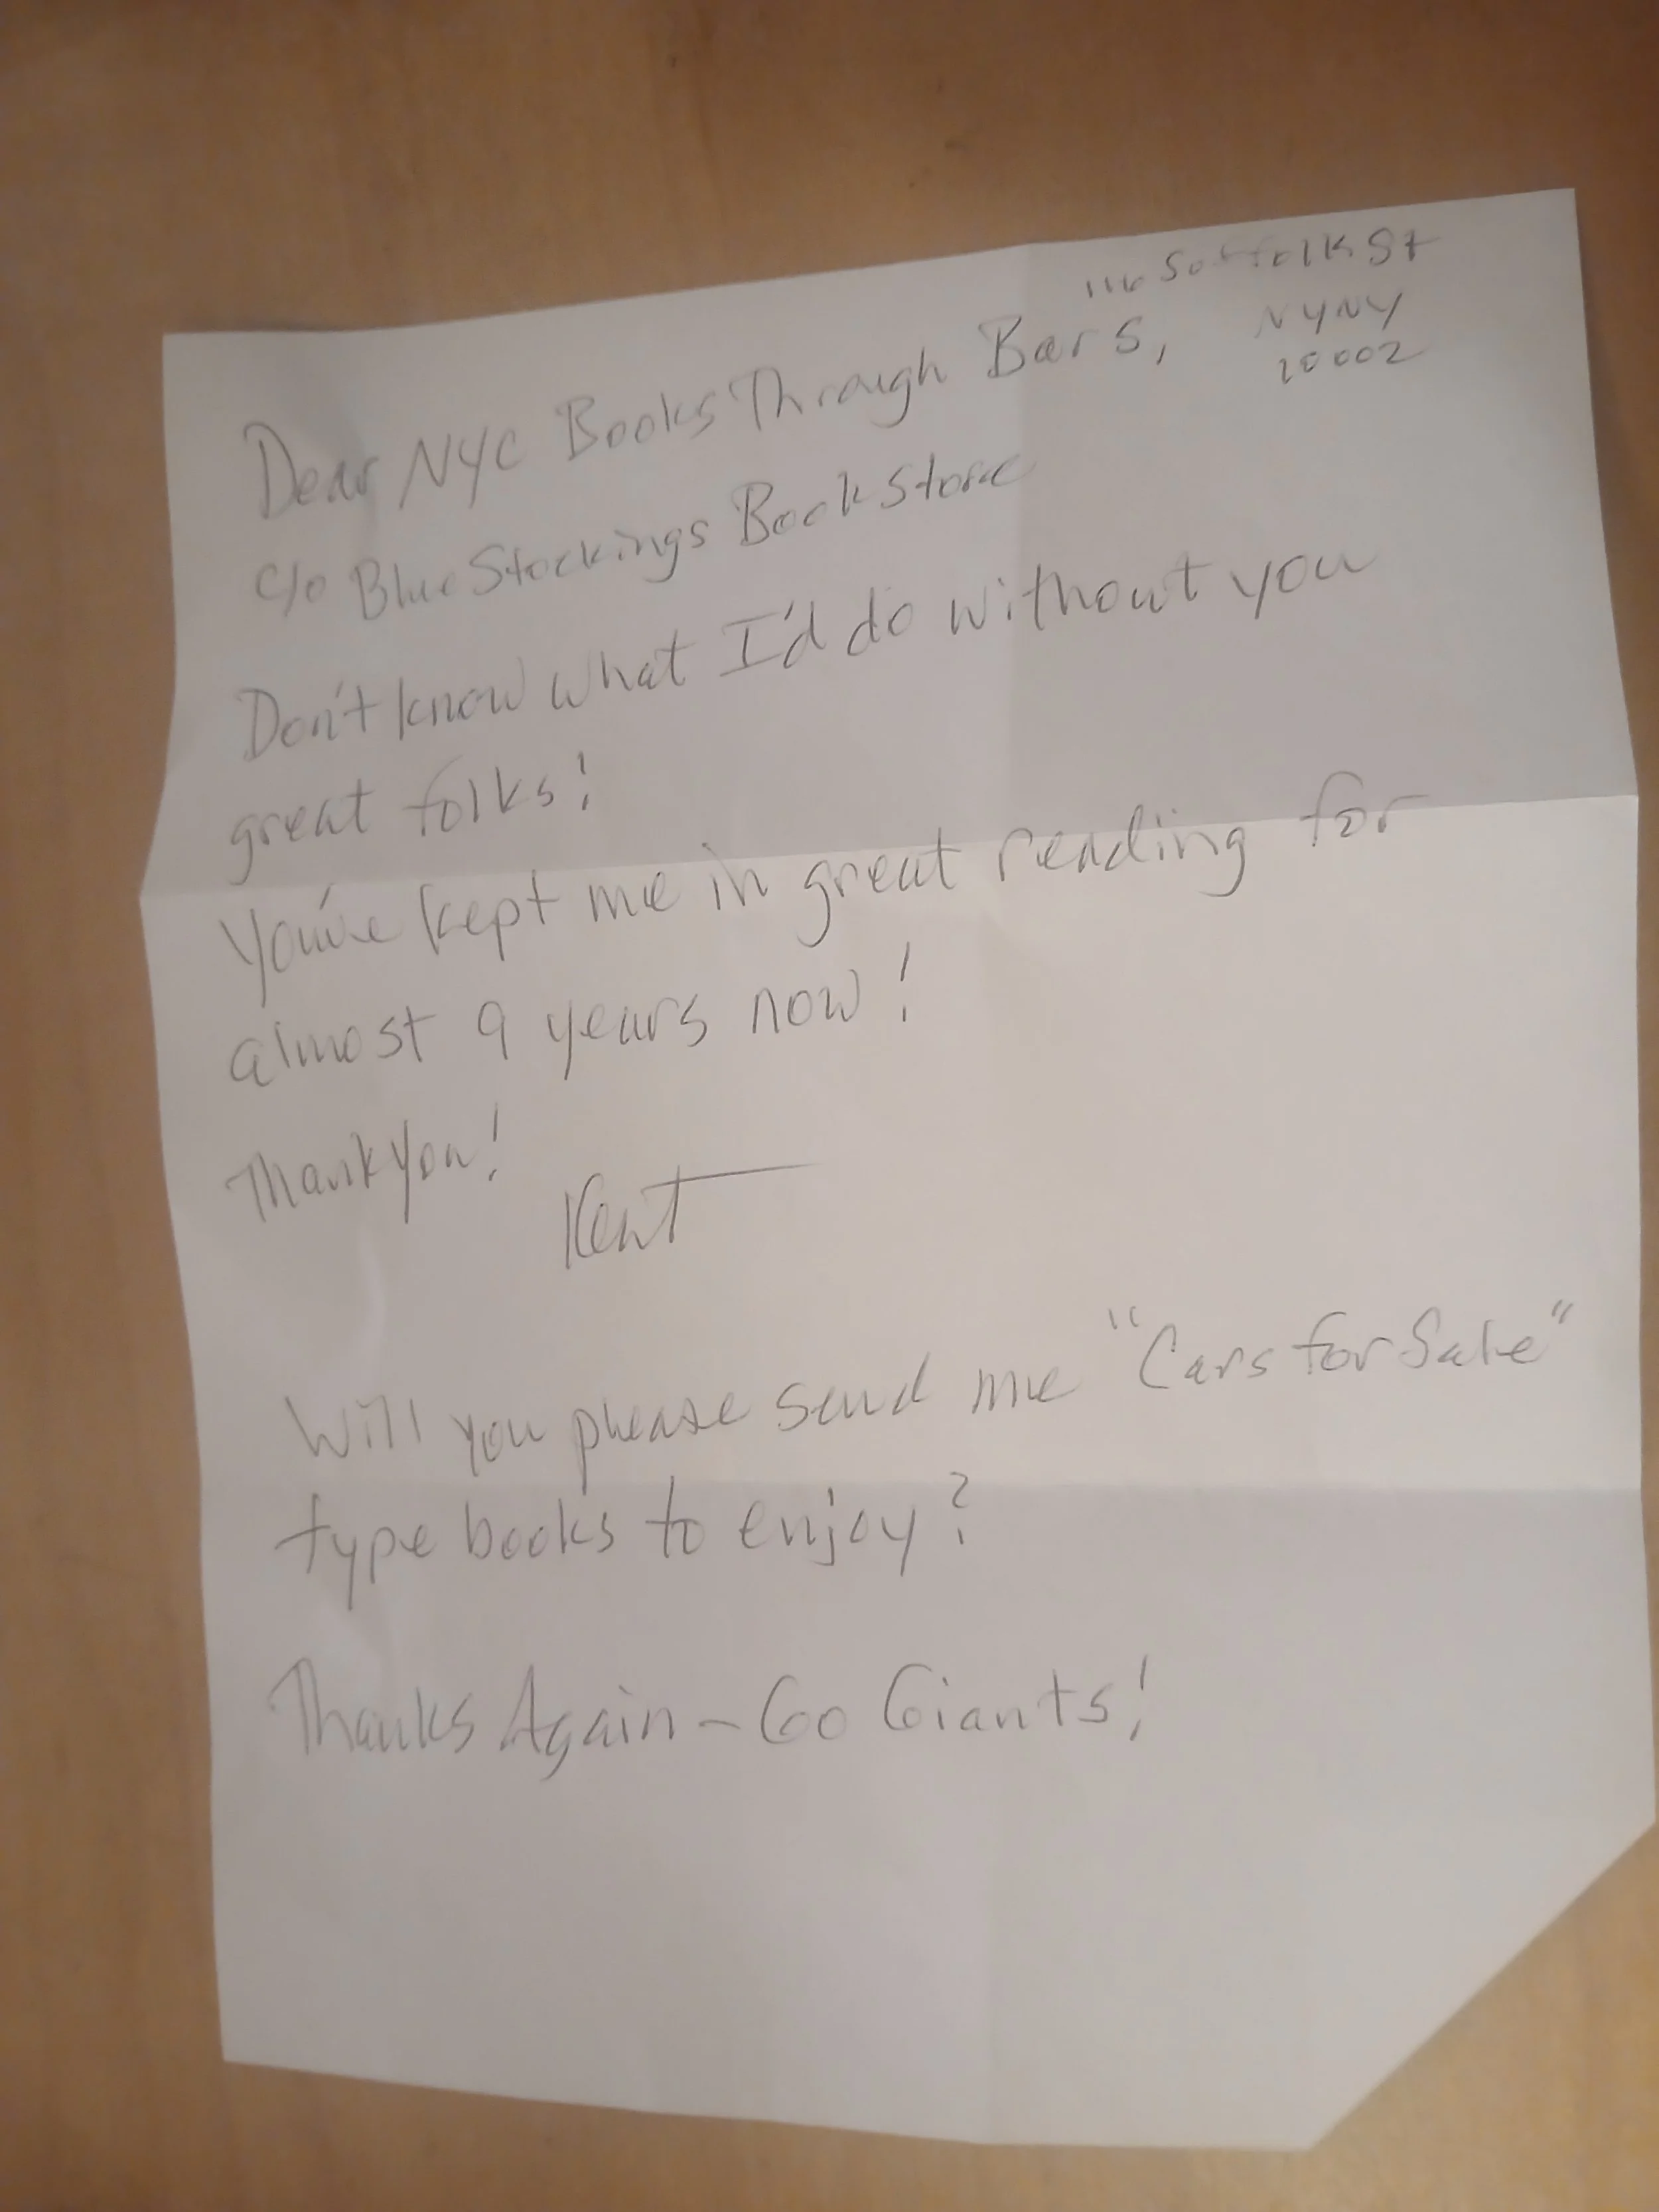 116 Suffolk St
NYNY
10002
Dear NYC Books Through Bars,
c/o BlueStockings Book Store
Don't know what I'd do without you
great folks!
You've kept me in great reading for
almost 9 years now!
Thank you!
Kent
Will you please send me "Cars for Sale"
type books to enjoy?
Thanks Again - Go Giants!